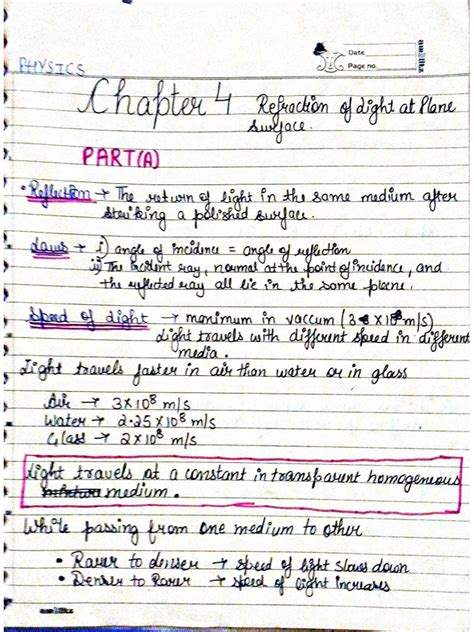 Date
Page no.
PHYSICS
Chapter 4 Refraction of Light at Plane
Surface.
PART(A)
• Reflection → The return of light in the same medium after
striking a polished surface.
Laws → i) angle of incidence = angle of reflection
ii) The incident ray, normal at the point of incidence, and
the reflected ray all lie in the same plane.
Speed of Light → maximum in vaccum (3 × 10⁸ m/s)
Light travels with different speed in different
media.
Light travels faster in air than water or in glass
Air → 3×10⁸ m/s
Water → 2.25×10⁸ m/s
Glass → 2×10⁸ m/s
Light travels at a constant in transparent homogeneous
medium.
While passing from one medium to other
• Rarer to denser → speed of light slows down
• Denser to Rarer → speed of light increases